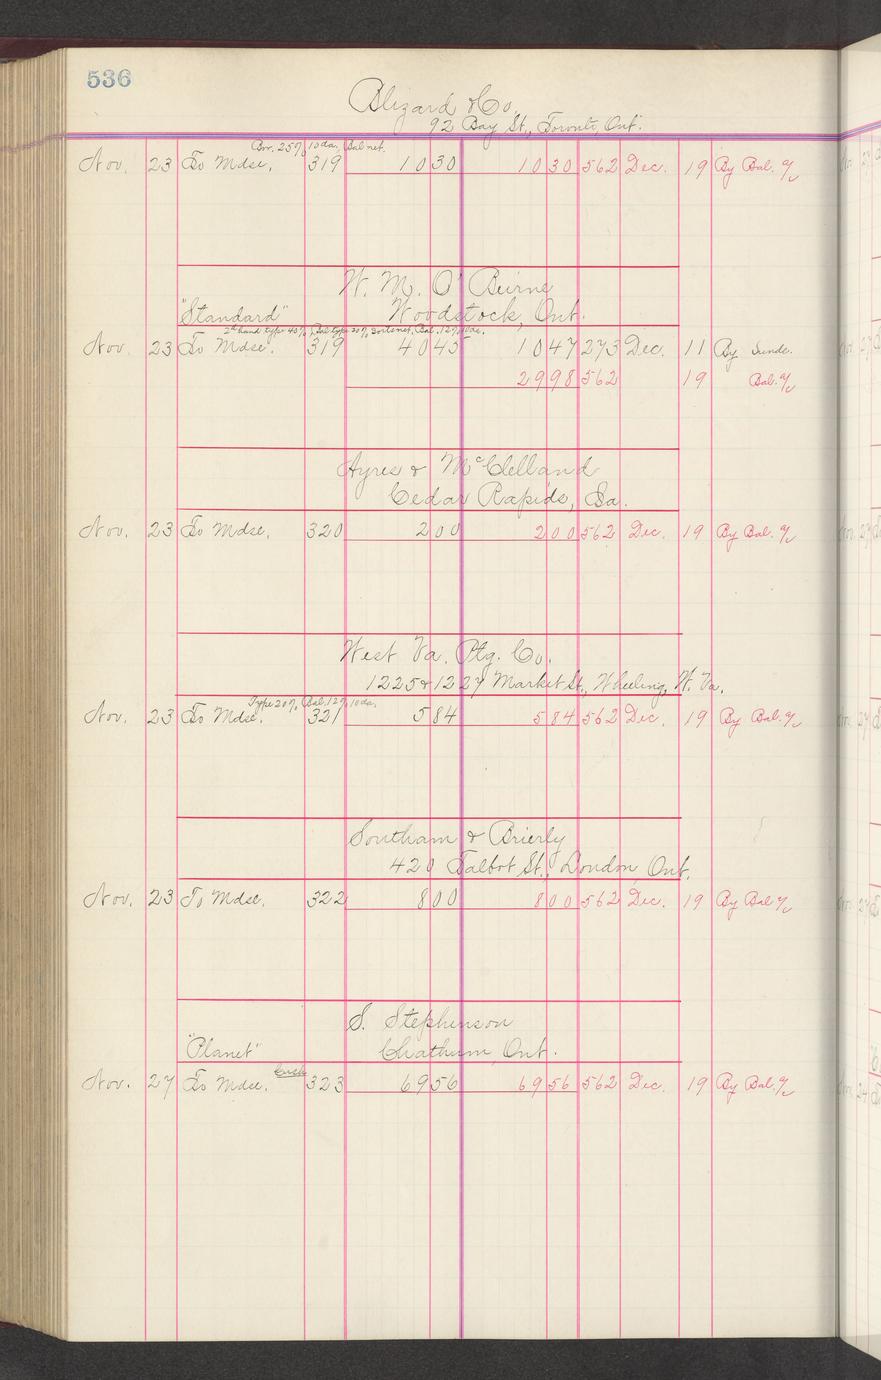 536
Blizard & Co.
92 Bay St., Toronto, Ont.
Bor. 25% 10 da, Bal net.
Nov. 23 To Mdse, 319 10 30 10 30 562 Dec. 19 By Bal. a/c
W. M. O'Beirne
"Standard" Woodstock, Ont.
2nd hand type 40%, Bal type 20%, Sorts net, Bal. 12% 10 da.
Nov. 23 To Mdse. 319 40 45 10 47 273 Dec. 11 By Sunds.
29 98 562 19 Bal. a/c
Ayres & McClelland
Cedar Rapids, Ia.
Nov. 23 To Mdse, 320 2 00 2 00 562 Dec. 19 By Bal. a/c
West Va. Ptg. Co.
1225 & 1227 Market St., Wheeling, W. Va.
Type 20%, Bal. 12% 10 da.
Nov. 23 To Mdse. 321 5 84 5 84 562 Dec. 19 By Bal. a/c
Southam & Brierly
420 Talbot St., London, Ont.
Nov. 23 To Mdse. 322 8 00 8 00 562 Dec. 19 By Bal a/c
S. Stephenson
"Planet" Chatham, Ont.
Cash
Nov. 27 To Mdse. 323 69 56 69 56 562 Dec. 19 By Bal. a/c